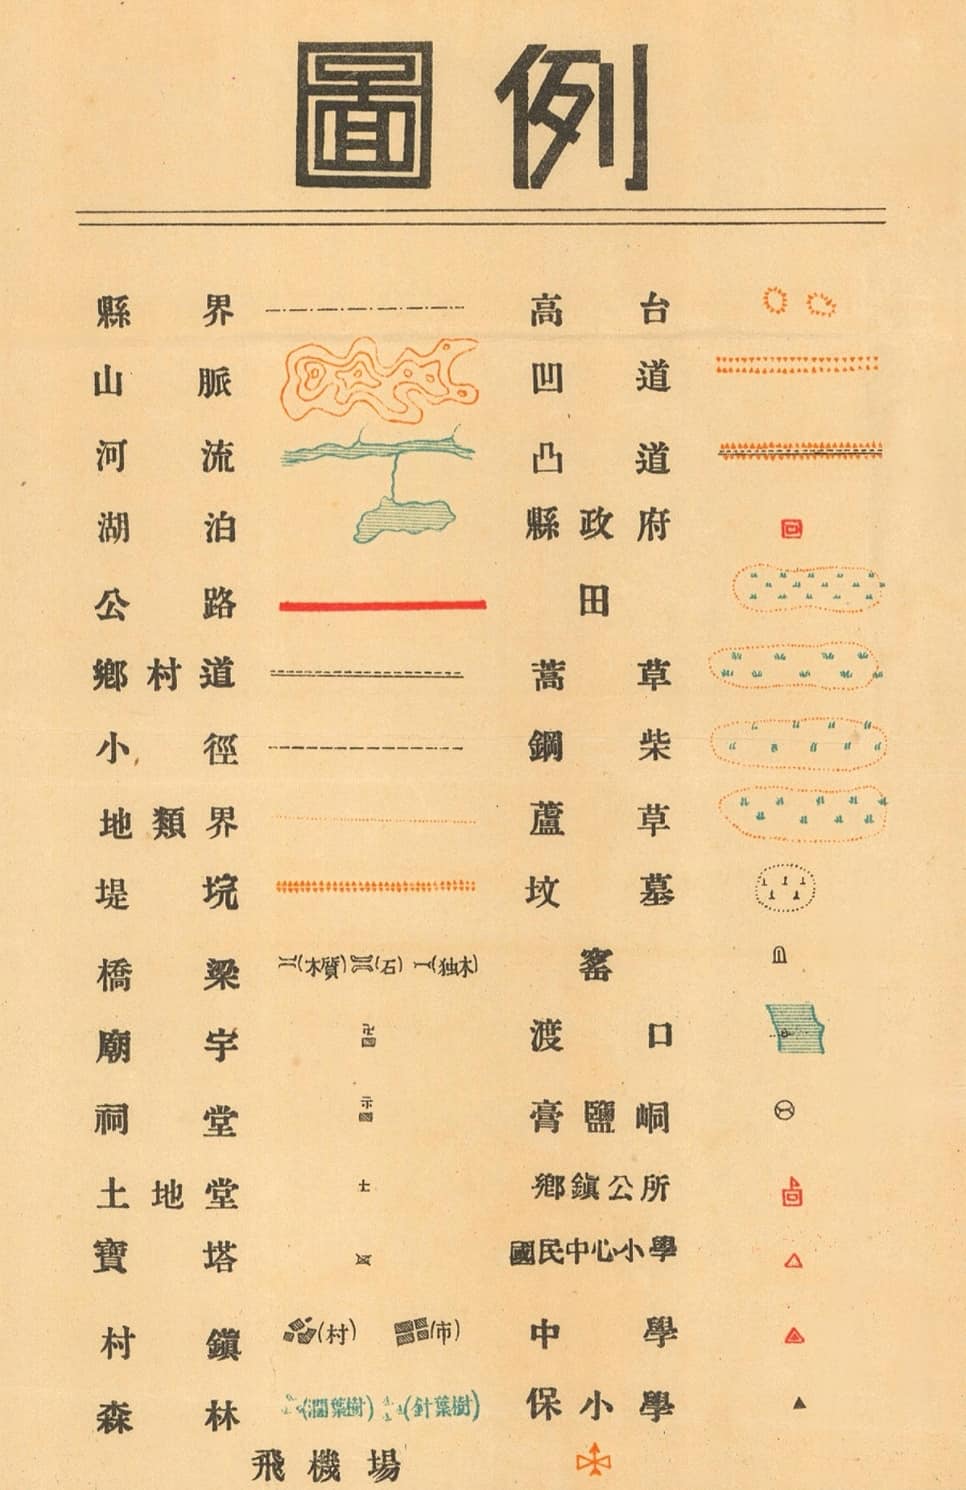 圖例
縣界
山脈
河流
湖泊
公路
鄉村道
小徑
地類界
堤垸
橋梁 (木質) (石) (独木)
廟宇 卍
祠堂 示
土地堂 土
寶塔
村鎮 (村) (市)
森林 (濶葉樹) (針葉樹)
高台
凹道
凸道
縣政府
田
蒿草
鋼柴
蘆草
坟墓
窰
渡口
膏鹽峒
鄉鎮公所
國民中心小學
中學
保小學
飛機場